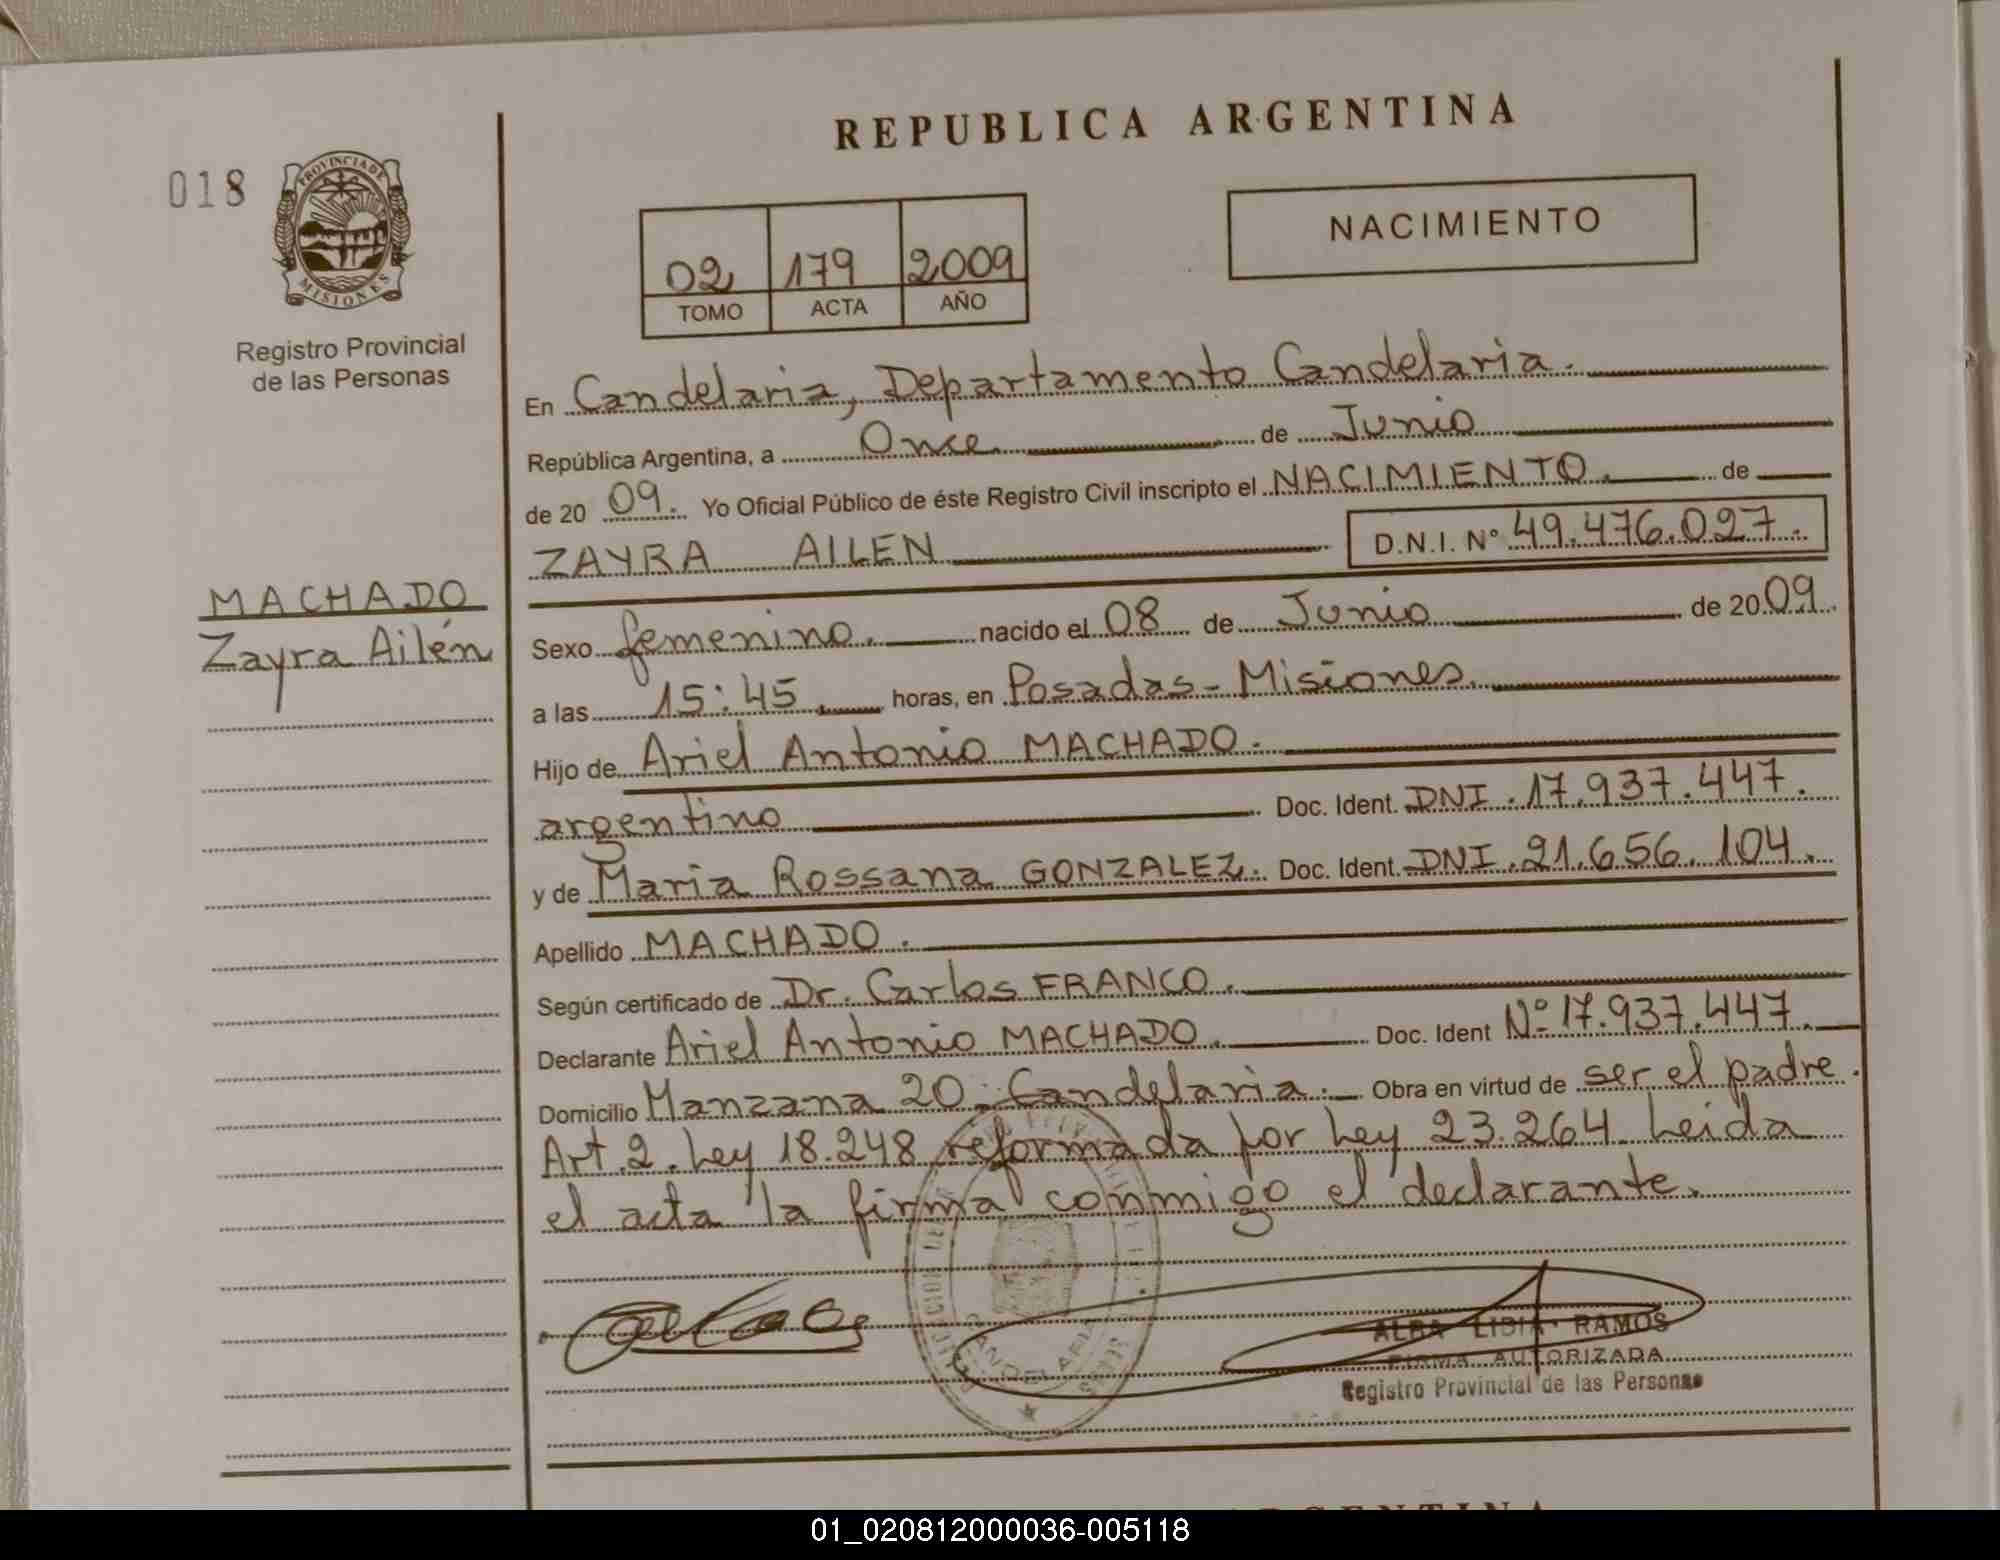 REPUBLICA ARGENTINA
018
PROVINCIA DE
MISIONES
Registro Provincial
de las Personas
NACIMIENTO
02 179 2009
TOMO ACTA AÑO
En Candelaria, Departamento Candelaria.
República Argentina, a Once de Junio
de 20 09. Yo Oficial Público de éste Registro Civil inscripto el NACIMIENTO. de
ZAYRA AILEN D.N.I. Nº 49.476.027.
MACHADO
Zayra Ailén
Sexo femenino. nacido el 08 de Junio de 20 09.
a las 15:45. horas, en Posadas - Misiones.
Hijo de Ariel Antonio MACHADO.
argentino Doc. Ident. DNI. 17.937.447.
y de Maria Rossana GONZALEZ. Doc. Ident. DNI. 21.656.104.
Apellido MACHADO.
Según certificado de Dr. Carlos FRANCO.
Declarante Ariel Antonio MACHADO. Doc. Ident Nº 17.937.447.
Domicilio Manzana 20. Candelaria. Obra en virtud de ser el padre.
Art. 2. Ley 18.248 reformada por Ley 23.264 Leida
el acta la firma conmigo el declarante.
CANDELARIA
ALBA LIDIA RAMOS
FIRMA AUTORIZADA
Registro Provincial de las Personas
ARGENTINA
01_020812000036-005118